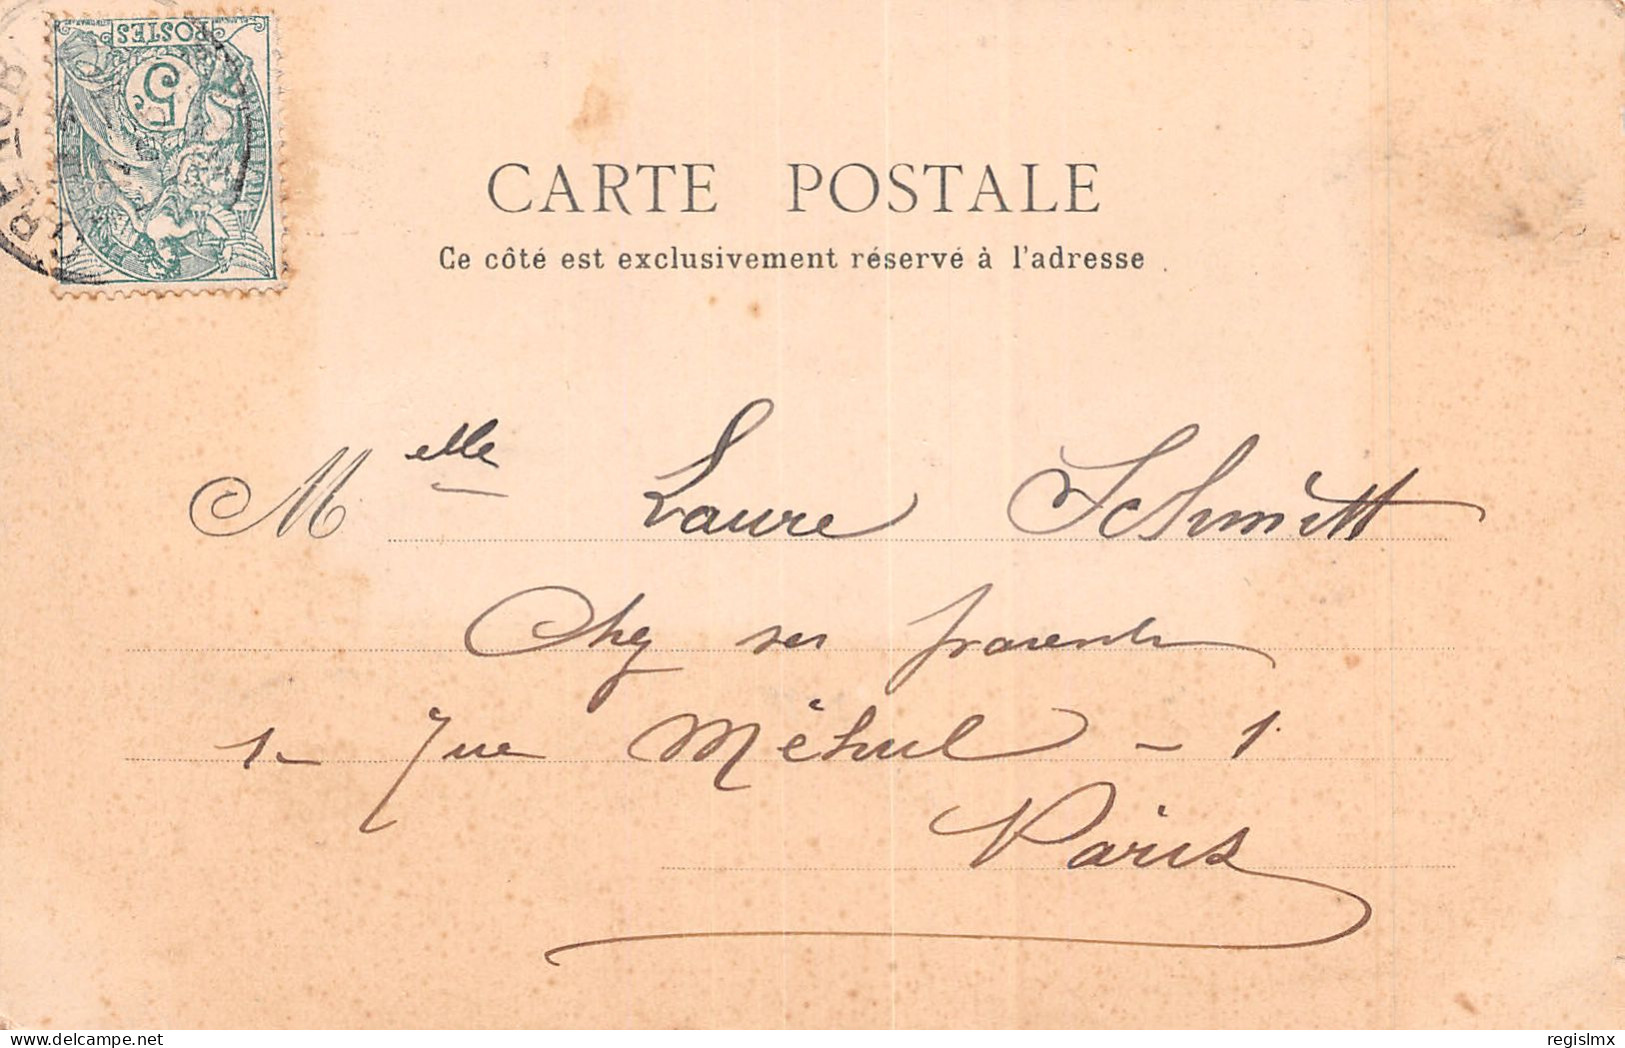 POSTES
5
CARTE POSTALE
Ce côté est exclusivement réservé à l'adresse
Melle Laure Schmitt
Chez ses parents
1 - rue Méhul - 1.
Paris
regislmx